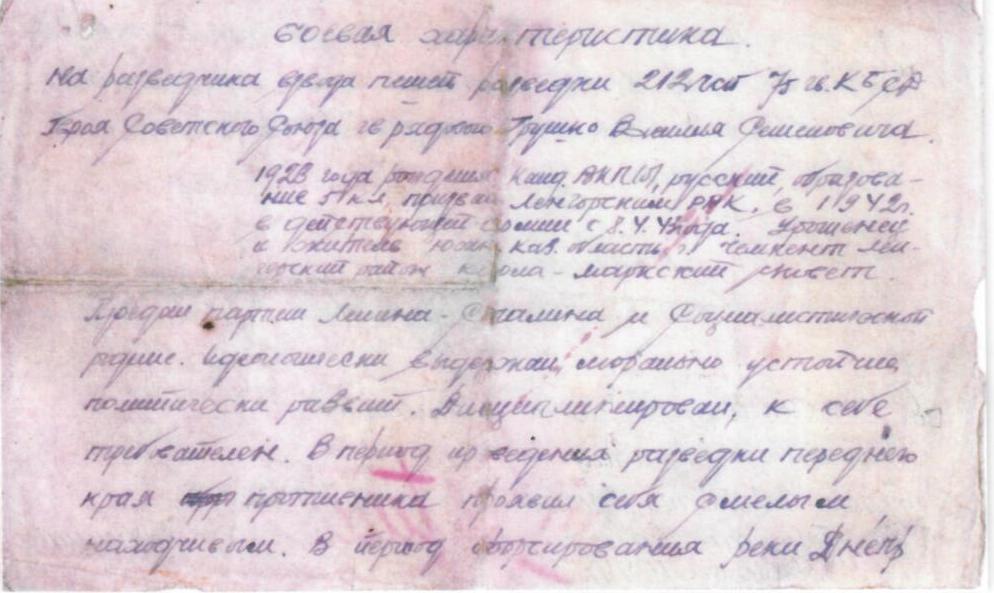 боевая характеристика.
на разведчика взвода пешей разведки 212 гсп 75 гв. КБСД
Героя Советского Союза гв рядового Грушко Василия Семеновича.
1923 года рождения, канд. ВКП(б), русский, образова-
ние 5 кл, призван Ленгорским РВК. в 1942г.
в действующей армии с 8.4.43года. Уроженец
и житель южн. каз. область г Чемкент Лен-
горский район карла-маркский с/совет.
Предан партии Ленина-Сталина и Социалистической
родине. Идеологически выдержан, морально устойчив,
политически развит. Дисциплинирован, к себе
требователен. В период проведения разведки переднего
края противника проявил себя смелым,
находчивым. В период форсирования реки Днепр